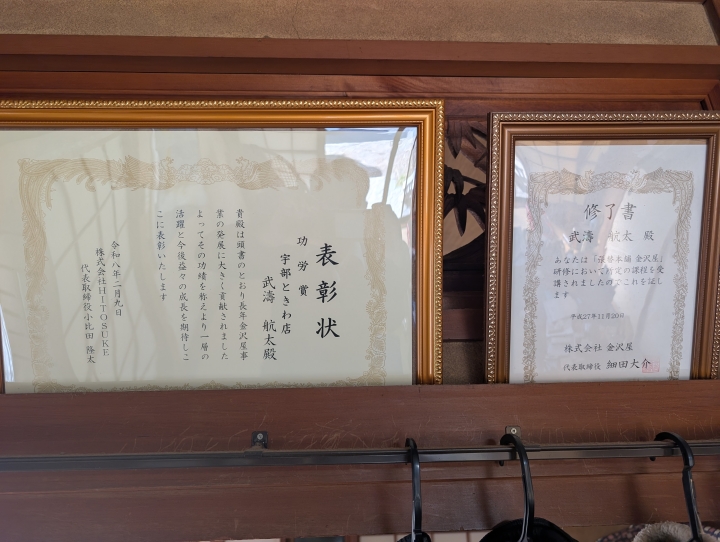 表彰状
功労賞
宇部ときわ店
武濤 航太殿
貴殿は頭書のとおり長年金沢屋事
業の発展に大きく貢献されました
よってその功績を称えより一層の
活躍と今後益々の成長を期待しこ
こに表彰いたします
令和八年二月九日
株式会社HITOSUKE
代表取締役小比田 隆太
修了書
武濤 航太 殿
あなたは「張替本舗 金沢屋」
研修において所定の課程を受
講されましたのでこれを証し
ます
平成27年11月20日
株式会社 金沢屋
代表取締役 細田大介